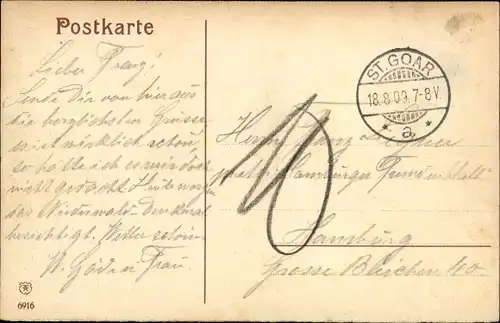 Postkarte
Lieber Franz!
Sende Dir von hier aus
die herzlichsten Grüsse
es ist wirklich schön
so hätte ich es mir doch
nicht gedacht Heute noch
das Niederwald-Denkmal
besichtigt. Wetter schön
W. Göde u. Frau.
ST. GOAR
18.8.09. 7-8 V.
* a *
10
Herrn Franz
Hamburger Fremdenblatt
Hamburg
Grosse Bleichen 40.
6916